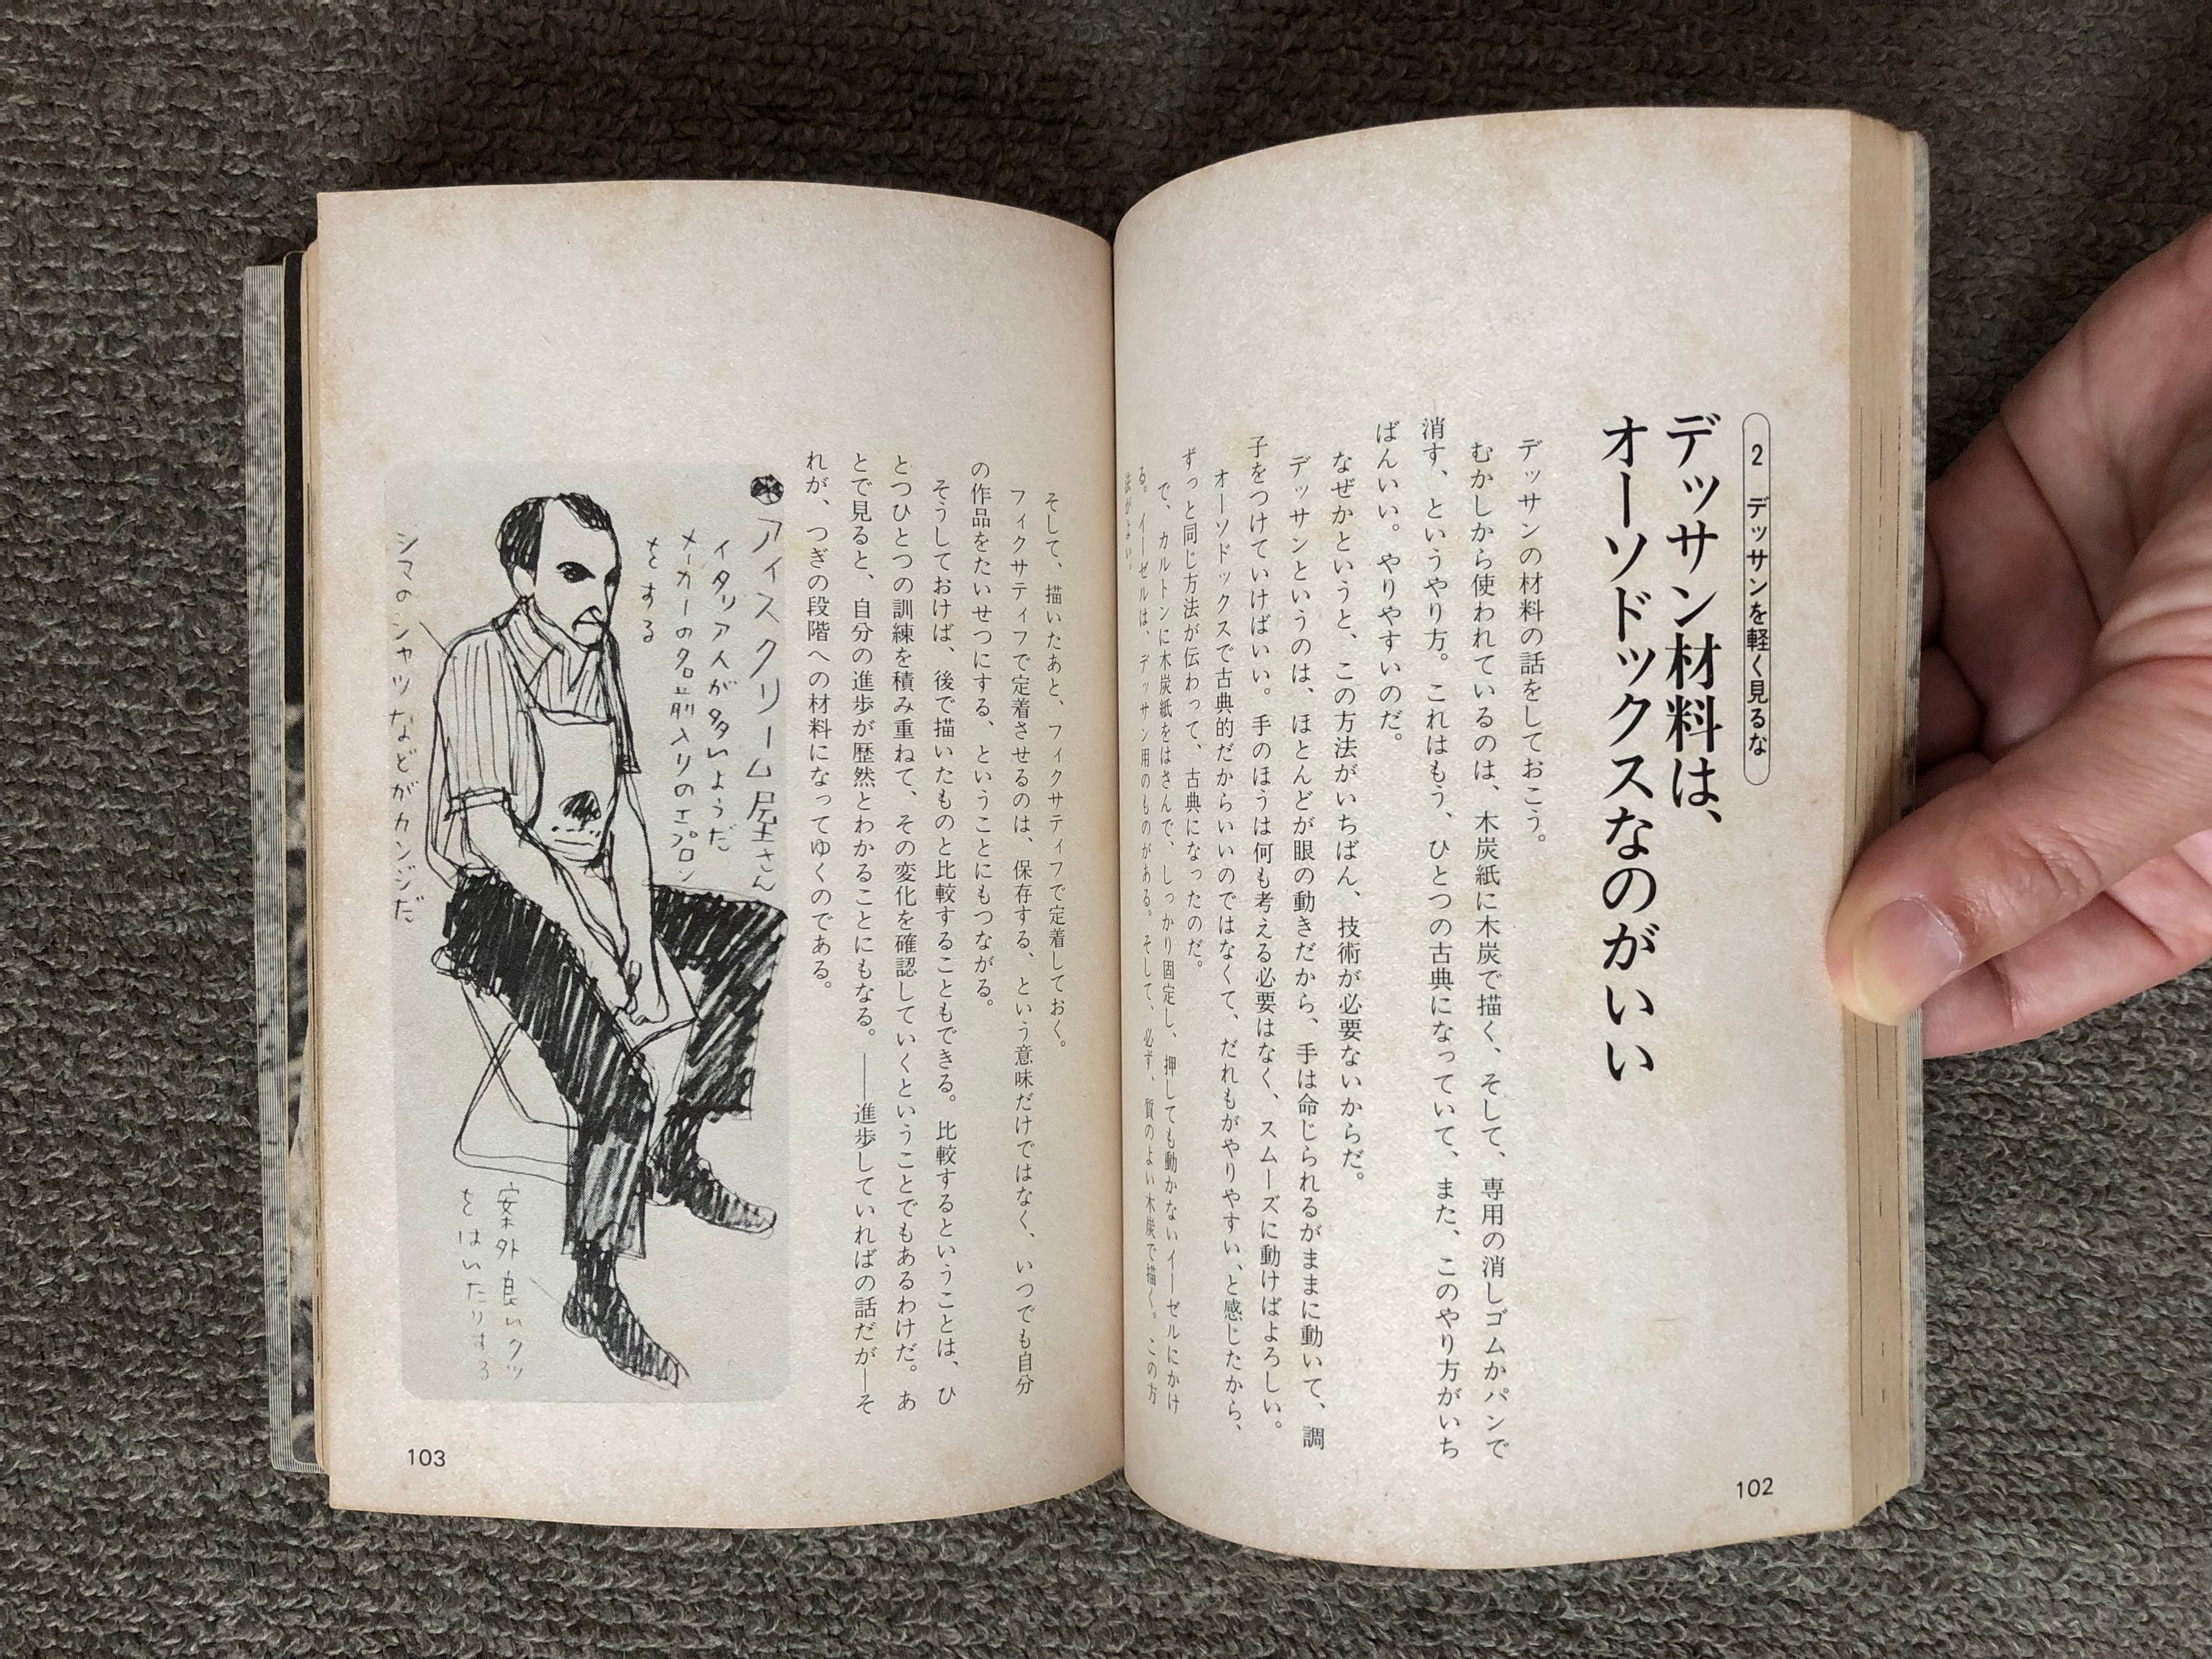 2 デッサンを軽く見るな
デッサン材料は、
オーソドックスなのがいい
デッサンの材料の話をしておこう。
むかしから使われているのは、木炭紙に木炭で描く、そして、専用の消しゴムかパンで
消す、というやり方。これはもう、ひとつの古典になっていて、また、このやり方がいち
ばんいい。やりやすいのだ。
なぜかというと、この方法がいちばん、技術が必要ないからだ。
デッサンというのは、ほとんどが眼の動きだから、手は命じられるがままに動いて、調
子をつけていけばいい。手のほうは何も考える必要はなく、スムーズに動けばよろしい。
オーソドックスで古典的だからいいのではなくて、だれもがやりやすい、と感じたから、
ずっと同じ方法が伝わって、古典になったのだ。
で、カルトンに木炭紙をはさんで、しっかり固定し、押しても動かないイーゼルにかけ
る。イーゼルは、デッサン用のものがある。そして、必ず、質のよい木炭で描く。この方
法がよい。
102
そして、描いたあと、フィクサティフで定着しておく。
フィクサティフで定着させるのは、保存する、という意味だけではなく、いつでも自分
の作品をたいせつにする、ということにもつながる。
そうしておけば、後で描いたものと比較することもできる。比較するということは、ひ
とつひとつの訓練を積み重ねて、その変化を確認していくということでもあるわけだ。あ
とで見ると、自分の進歩が歴然とわかることにもなる。――進歩していればの話だが―そ
れが、つぎの段階への材料になってゆくのである。
アイスクリーム屋さん
イタリア人が多いようだ
メーカーの名前入りのエプロン
をする
シマのシャツなどがカンジだ
案外良いクツ
をはいたりする
103